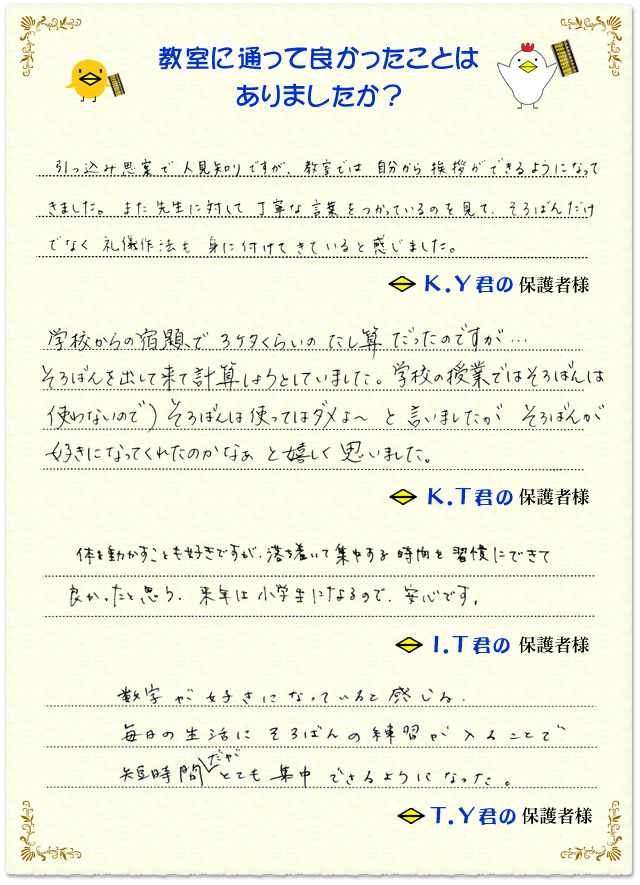 教室に通って良かったことは
ありましたか？
引っ込み思案で人見知りですが、教室では自分から挨拶ができるようになって
きました。また先生に対して丁寧な言葉をつかっているのを見て、そろばんだけ
でなく礼儀作法も身に付けてきていると感じました。
K.Y君の保護者様
学校からの宿題で 3ケタくらいの たし算 だったのですが…
そろばんを出して来て計算しようとしていました。学校の授業ではそろばんは
使わないので）そろばんは使ってはダメよ〜 と言いましたが そろばんが
好きになってくれたのかなぁ と嬉しく思いました。
K.T君の保護者様
体を動かすことも好きですが、落ち着いて集中する時間を習慣にできて
良かったと思う。来年は小学生になるので、安心です。
I.T君の保護者様
数字が好きになっていると感じる.
毎日の生活にそろばんの練習が入ることで
短時間だがとても集中できるようになった。
T.Y君の保護者様